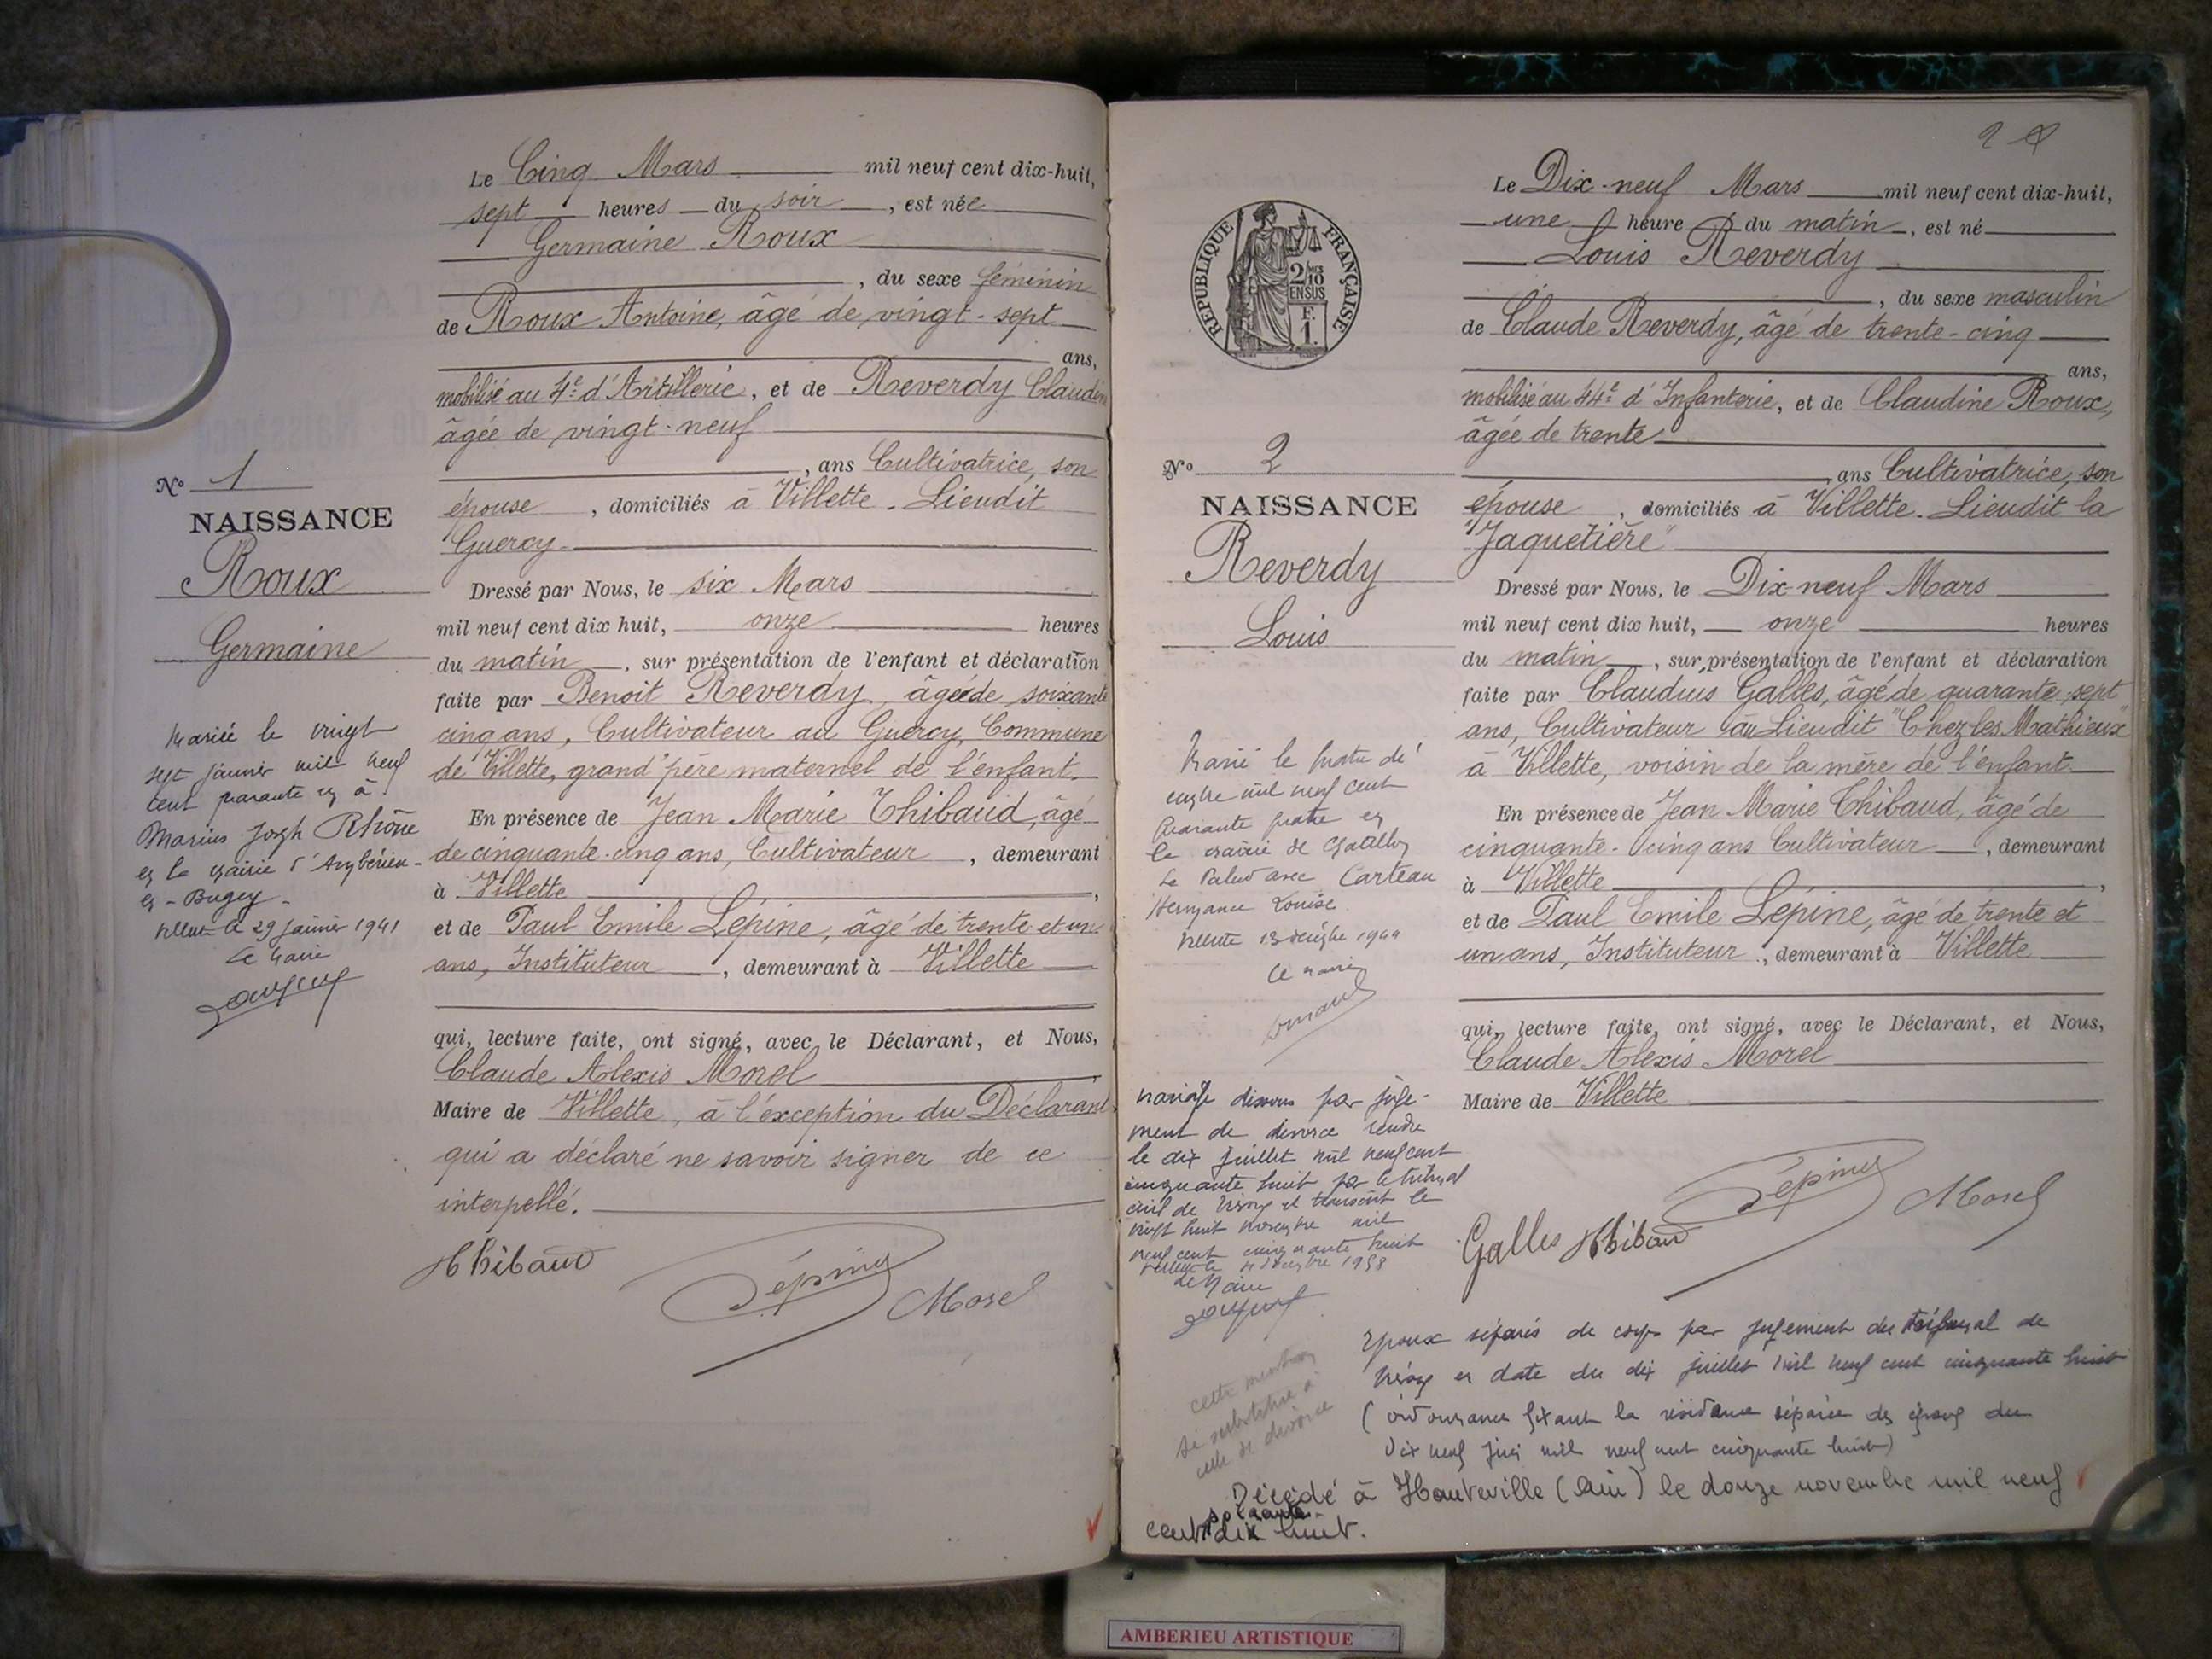 Le Cinq Mars mil neuf cent dix-huit,
sept heures du soir, est née
Germaine Roux
, du sexe féminin
de Roux Antoine, âgé de vingt-sept
ans,
mobilisé au 4e d'Artillerie, et de Reverdy Claudine
âgée de vingt-neuf
, ans Cultivatrice, son
épouse, domiciliés à Villette. Lieudit
Guercy.
Dressé par Nous, le six Mars
mil neuf cent dix huit, onze heures
du matin, sur présentation de l'enfant et déclaration
faite par Benoit Reverdy, âgé de soixante
cinq ans, Cultivateur au Guercy, Commune
de Villette, grand'père maternel de l'enfant.
En présence de Jean Marie Thibaud, âgé
de cinquante-cinq ans, Cultivateur, demeurant
à Villette,
et de Paul Emile Lépine, âgé de trente et un
ans, Instituteur, demeurant à Villette
qui, lecture faite, ont signé, avec le Déclarant, et Nous,
Claude Alexis Morel
Maire de Villette, à l'exception du Déclarant
qui a déclaré ne savoir signer de ce
interpellé.
Thibaud
Lépine
Morel
N° 1
NAISSANCE
Roux
Germaine
Mariée le vingt
sept janvier mil neuf
cent quarante un à
Marius Joseph Rhône
en la mairie d'Ambérieu-
en-Bugey-
le 29 janvier 1941
Le Maire
2
RÉPUBLIQUE FRANÇAISE
2/10
EN SUS
F.
1.
N° 2
NAISSANCE
Reverdy
Louis
Marié le quatre dé
cembre mil neuf cent
quarante quatre en
la mairie de
la Palud avec Carteau
Hermance Louise
13 décembre 1944
Le Maire
Mariage dissous par juge-
ment de divorce rendu
le dix juillet mil neuf cent
cinquante huit par le tribunal
civil de et transcrit le
vingt huit novembre mil
neuf cent cinquante huit
décembre 1958
Le Maire
cette mention
se substitue à
celle de divorce
Le Dix-neuf Mars mil neuf cent dix-huit,
une heure du matin, est né
Louis Reverdy
, du sexe masculin
de Claude Reverdy, âgé de trente-cinq
ans,
mobilisé au 44e d'Infanterie, et de Claudine Roux,
âgée de trente
, ans Cultivatrice, son
épouse, domiciliés à Villette. Lieudit la
"Jaquetière"
Dressé par Nous, le Dix-neuf Mars
mil neuf cent dix huit, onze heures
du matin, sur présentation de l'enfant et déclaration
faite par Claudius Galles, âgé de quarante-sept
ans, Cultivateur au Lieudit "Chez les Mathieux"
à Villette, voisin de la mère de l'enfant.
En présence de Jean Marie Thibaud, âgé de
cinquante-cinq ans Cultivateur, demeurant
à Villette,
et de Paul Emile Lépine, âgé de trente et
un ans, Instituteur, demeurant à Villette
qui, lecture faite, ont signé, avec le Déclarant, et Nous,
Claude Alexis Morel
Maire de Villette
Galles Thibaud
Lépine
Morel
Epoux séparés de corps par jugement du tribunal de
en date du dix juillet mil neuf cent cinquante huit
(ordonnance fixant la résidence séparée des époux du
dix neuf juin mil neuf cent cinquante huit)
Décédé à Hauteville (Ain) le douze novembre mil neuf
soixante
cent dix huit.
AMBERIEU ARTISTIQUE